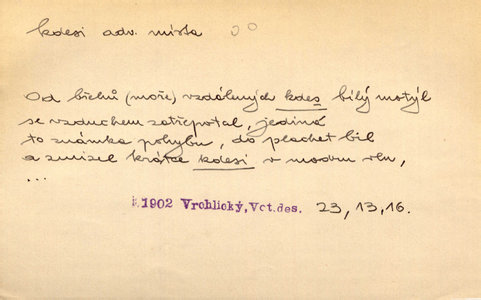 kdesi adv. místa
Od břehů (moře) vzdálených kdes bílý motýl
se vzduchem zatřepotal, jediná
to známka pohybu, do plachet bil
a zmizel krátce kdesi v modru vln,
...
1902 Vrchlický, Vct.des. 23, 13, 16.